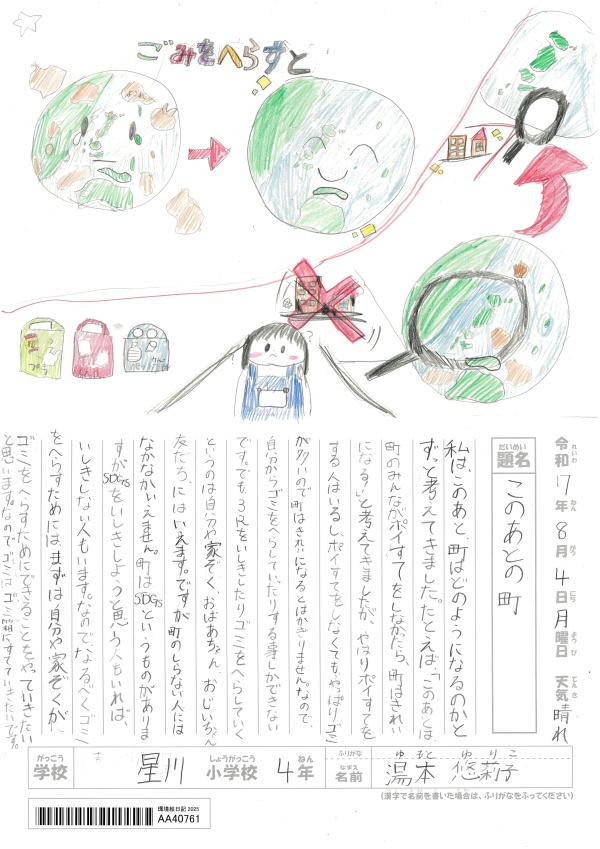 ごみをへらすと
令和7年8月4日月曜日 天気 晴れ
れいわ ねん がつ にち ようび てんき
だいめい
題名 このあとの町
私は、このあと、町はどのようになるのかと
ずっと考えてきました。たとえば、「このあとは、
町のみんながポイすてをしなかったら、町はきれい
になる!」と考えてきましたが、やはりポイすてを
する人はいるし、ポイすてをしなくても、やっぱりゴミ
が多いので町はきれいになるとはかぎりません。なので、
自分からゴミをへらしていったりする事しかできない
です。でも、3Rをいしきしたりゴミをへらしていく
というのは自分や家ぞく、おばあちゃん、おじいちゃん
友だち、にはいえます。ですが町のしらない人には
なかなかいえません。町はSDGsというものがありま
すがSDGsをいしきしよ、うと思う人もいれば、
いしきしない人もいます。なので、なるべくゴミ
をへらすためには、まずは自分や家ぞくが
ゴミをへらすためにできることをやっていきたい
と思います。なので、ゴミはゴミ箱にすてていきたいです。
がっこう しょうがっこう ねん
学校 星川 小学校 4年
ふりがな ゆもと ゆりこ
なまえ
名前 湯本 悠莉子
(漢字で名前を書いた場合は、ふりがなをふってください)
環境絵日記 2025
AA40761